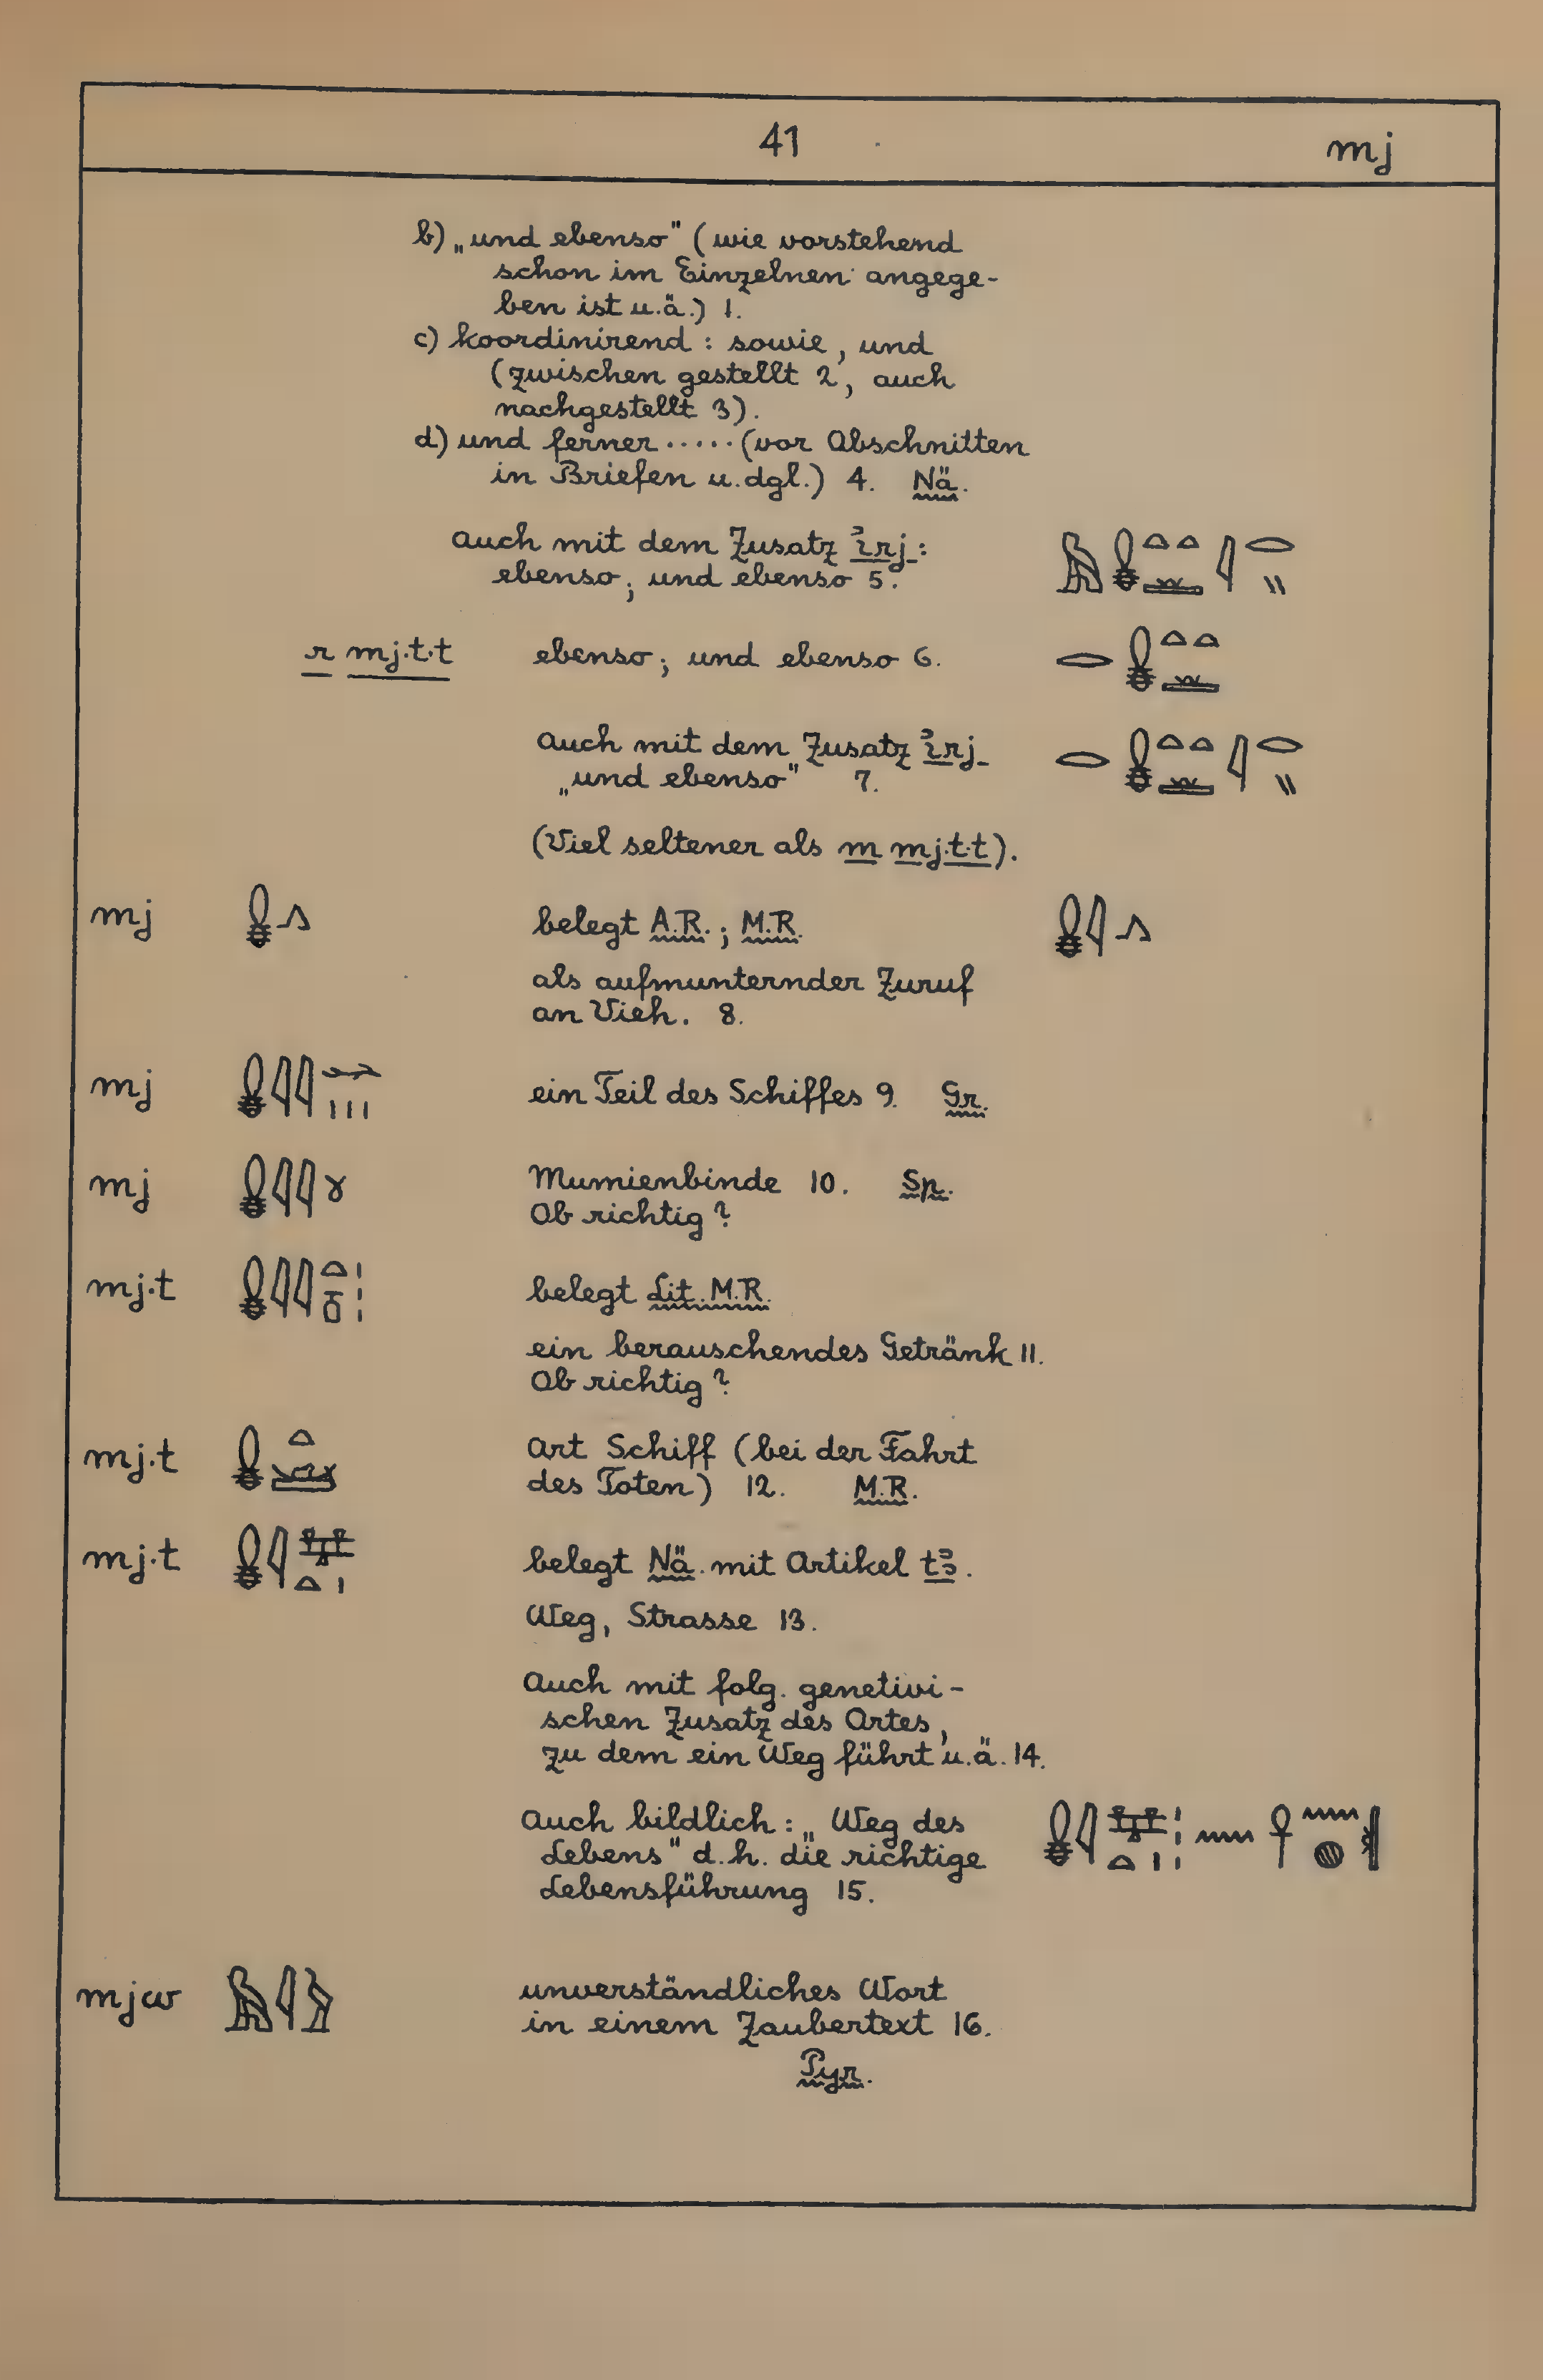 41 mj
b) „und ebenso" (wie vorstehend
schon im Einzelnen angege-
ben ist u.ä.) 1.
c) koordinirend : sowie, und
(zwischen gestellt 2, auch
nachgestellt 3).
d) und ferner ..... (vor Abschnitten
in Briefen u.dgl.) 4. Nä.
Auch mit dem Zusatz ꞽrj :
ebenso; und ebenso 5. 𓅓𓏇𓏏𓏏𓇋𓂋𓏭
r mj.t.t ebenso; und ebenso 6. 𓂋𓏇𓏏𓏏
Auch mit dem Zusatz ꞽrj 𓂋𓏇𓏏𓏏𓇋𓂋𓏭
„und ebenso" 7.
(Viel seltener als m mj.t.t).
mj 𓏇𓂻 belegt A.R.; M.R. 𓏇𓇋𓂻
als aufmunternder Zuruf
an Vieh. 8.
mj 𓏇𓇋𓇋𓆱𓏥 ein Teil des Schiffes 9. Gr.
mj 𓏇𓇋𓇋𓍱 Mumienbinde 10. Sp.
Ob richtig?
mj.t 𓏇𓇋𓇋𓏏𓏊𓏥 belegt Lit. M.R.
ein berauschendes Getränk 11.
Ob richtig?
mj.t 𓏇𓏏 Art Schiff (bei der Fahrt
des Toten) 12. M.R.
mj.t 𓏇𓇋𓈐𓏏𓏤 belegt Nä. mit Artikel tꜣ.
Weg, Strasse 13.
Auch mit folg. genetivi-
schen Zusatz des Ortes,
zu dem ein Weg führt u.ä. 14.
Auch bildlich: „Weg des 𓏇𓇋𓈐𓏏𓏤𓏥𓈖𓋹𓈖𓐍𓏛
Lebens" d.h. die richtige
Lebensführung 15.
mjw 𓅓𓇋𓅱 unverständliches Wort
in einem Zaubertext 16.
Pyr.